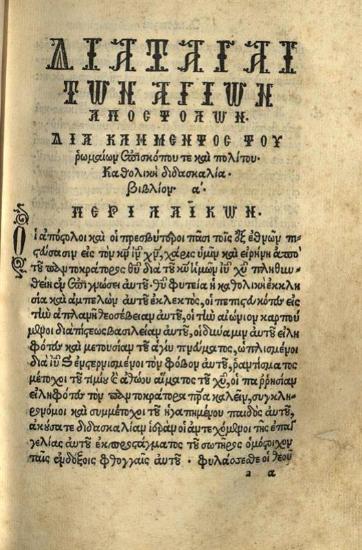 ΔΙΑΤΑΓΑΙ
ΤΩΝ ΑΓΙΩΝ
ΑΠΟΣΤΟΛΩΝ.
ΔΙΑ ΚΛΗΜΕΝΤΟΣ ΤΟΥ
ῥωμαίων ἐπισκόπου τε καὶ πολίτου.
Καθολικὴ διδασκαλία.
Βιβλίον α΄.
ΠΕΡΙ ΛΑΪΚΩΝ.
Οἱ ἀπόστολοι καὶ οἱ πρεσβύτεροι πᾶσι τοῖς ἐξ ἐθνῶν πι
στεύσασιν εἰς τὸν κν ιν χν, χάρις ὑμῖν καὶ εἰρήνη ἀπὸ
τοῦ παντοκράτορος θυ διὰ τοῦ κυ ἡμῶν ιυ χυ πληθυν
θείη ἐν ἐπιγνώσει αὐτοῦ. θυ φυτεία ἡ καθολικὴ ἐκκλη
σία καὶ ἀμπελὼν αὐτοῦ ἐκλεκτός, οἱ πεπιστευκότες εἰς
τὴν ἀπλανῆ θεοσέβειαν αὐτοῦ, οἱ τὴν αἰώνιον καρπού
μενοι διὰ πίστεως βασιλείαν αὐτοῦ, οἱ δύναμιν αὐτοῦ εἰλη
φότες καὶ μετουσίαν τοῦ ἁγίου πνεύματος, ὡπλισμένοι
διὰ ιυ ἐνεστερνισμένοι τὸν φόβον αὐτοῦ, ῥαντίσματος
μέτοχοι τοῦ τιμίου καὶ ἀθώου αἵματος τοῦ χυ, οἱ παρρησίαν
εἰληφότες τὸν παντοκράτορα πρα καλεῖν, συγκλη
ρονόμοι καὶ συμμέτοχοι τοῦ ἠγαπημένου παιδὸς αὐτοῦ,
ἀκούσατε διδασκαλίαν ἱερὰν οἱ ἀντεχόμενοι τῆς ἐπαγ
γελίας αὐτοῦ ἐκ προστάγματος τοῦ σωτῆρος ὁμόστοιχον
ταῖς ἐνδόξοις φθογγαῖς αὐτοῦ. φυλάσσεσθε οἱ θεοῦ
a